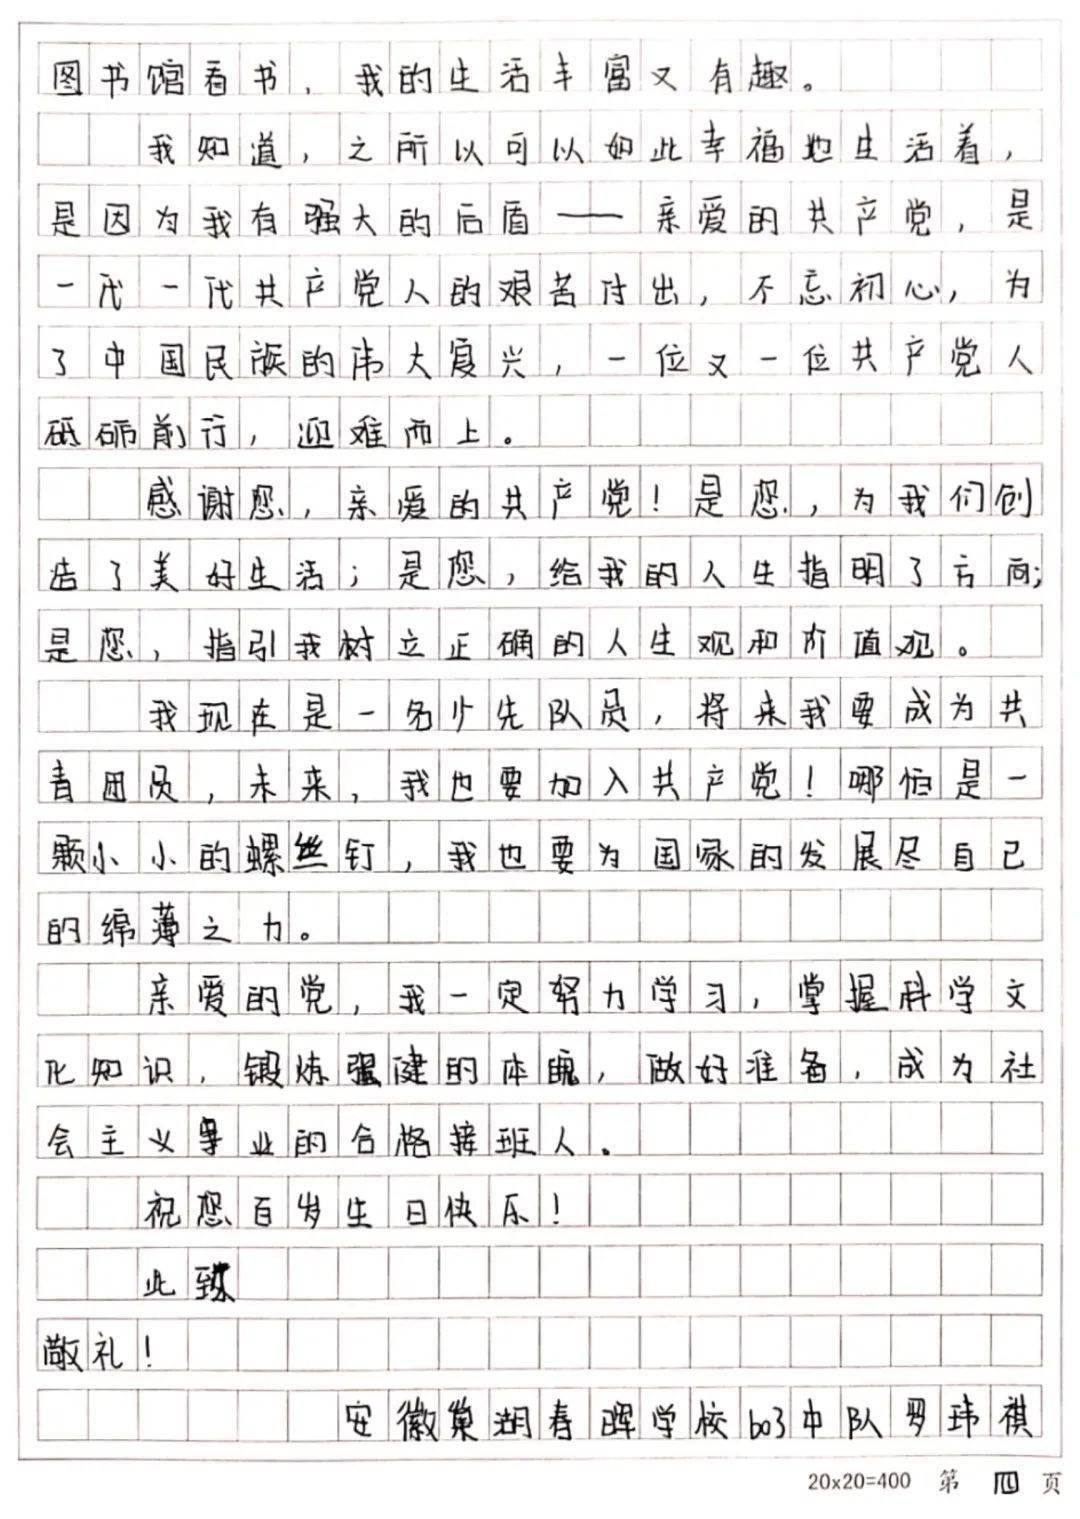 图书馆看书，我的生活丰富又有趣。
我知道，之所以可以如此幸福地生活着，
是因为我有强大的后盾——亲爱的共产党，是
一代一代共产党人的艰苦付出，不忘初心，为
了中国民族的伟大复兴，一位又一位共产党人
砥砺前行，迎难而上。
感谢您，亲爱的共产党！是您，为我们创
造了美好生活；是您，给我的人生指明了方向；
是您，指引我树立正确的人生观和价值观。
我现在是一名少先队员，将来我要成为共
青团员，未来，我也要加入共产党！哪怕是一
颗小小的螺丝钉，我也要为国家的发展尽自己
的绵薄之力。
亲爱的党，我一定努力学习，掌握科学文
化知识，锻炼强健的体魄，做好准备，成为社
会主义事业的合格接班人。
祝您百岁生日快乐！
此致
敬礼！
安徽巢湖春晖学校603中队罗玮祺
20x20=400 第四页